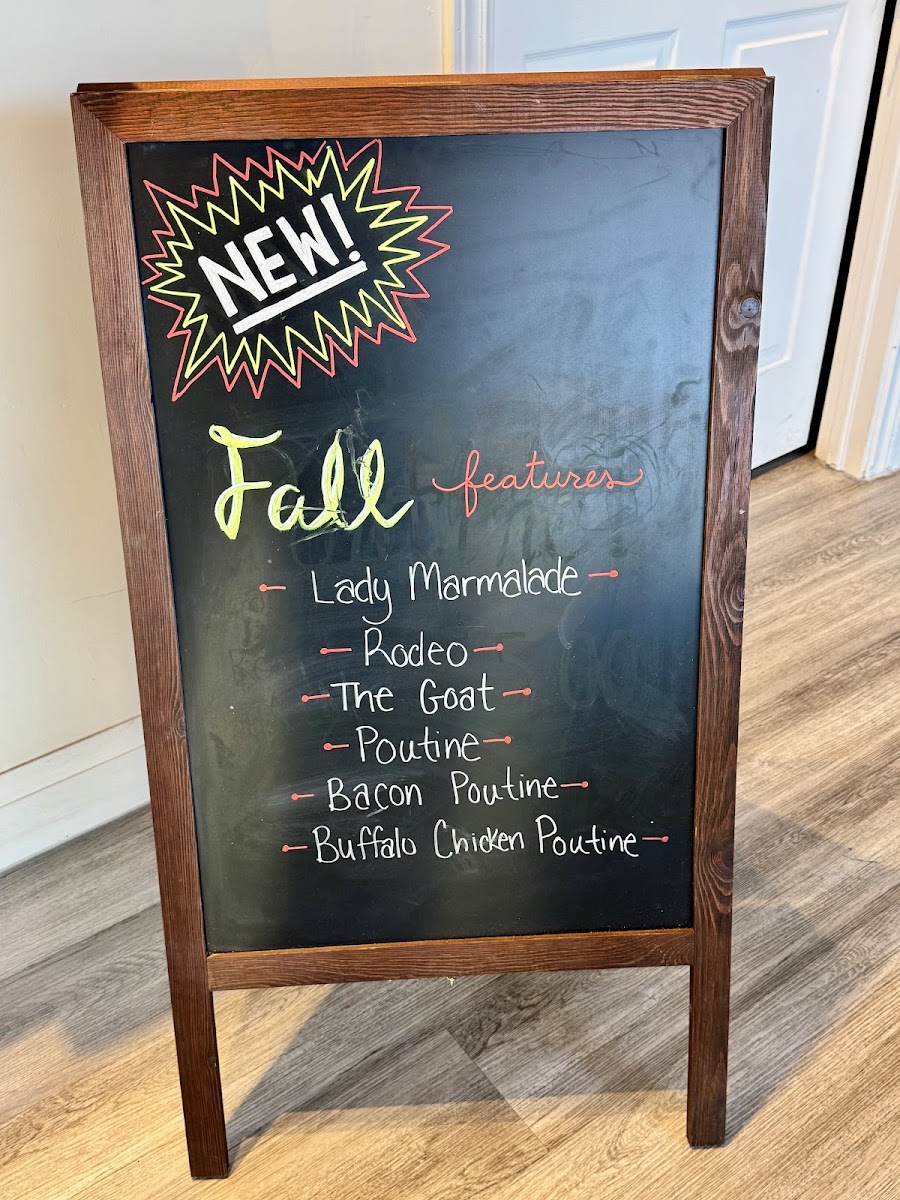 NEW!
Fall features
Lady Marmalade
Rodeo
The Goat
Poutine
Bacon Poutine
Buffalo Chicken Poutine